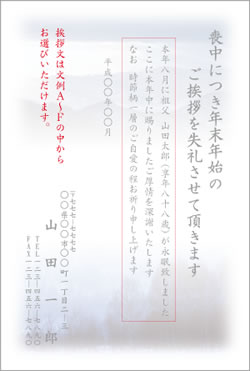 喪中につき年末年始の
ご挨拶を失礼させて頂きます
本年八月に祖父 山田太郎(享年八十八歳)が永眠致しました
ここに本年中に賜りましたご厚情を深謝いたします
なお 時節柄一層のご自愛の程お祈り申し上げます
平成〇〇年〇〇月
挨拶文は文例A~Fの中から
お選びいただけます。
〒七七七-七七七七
〇〇県〇〇市〇〇町一丁目二-三
山田一郎
TEL 一二三-四五六-七八九〇
FAX 一二三-四五六-七八九〇